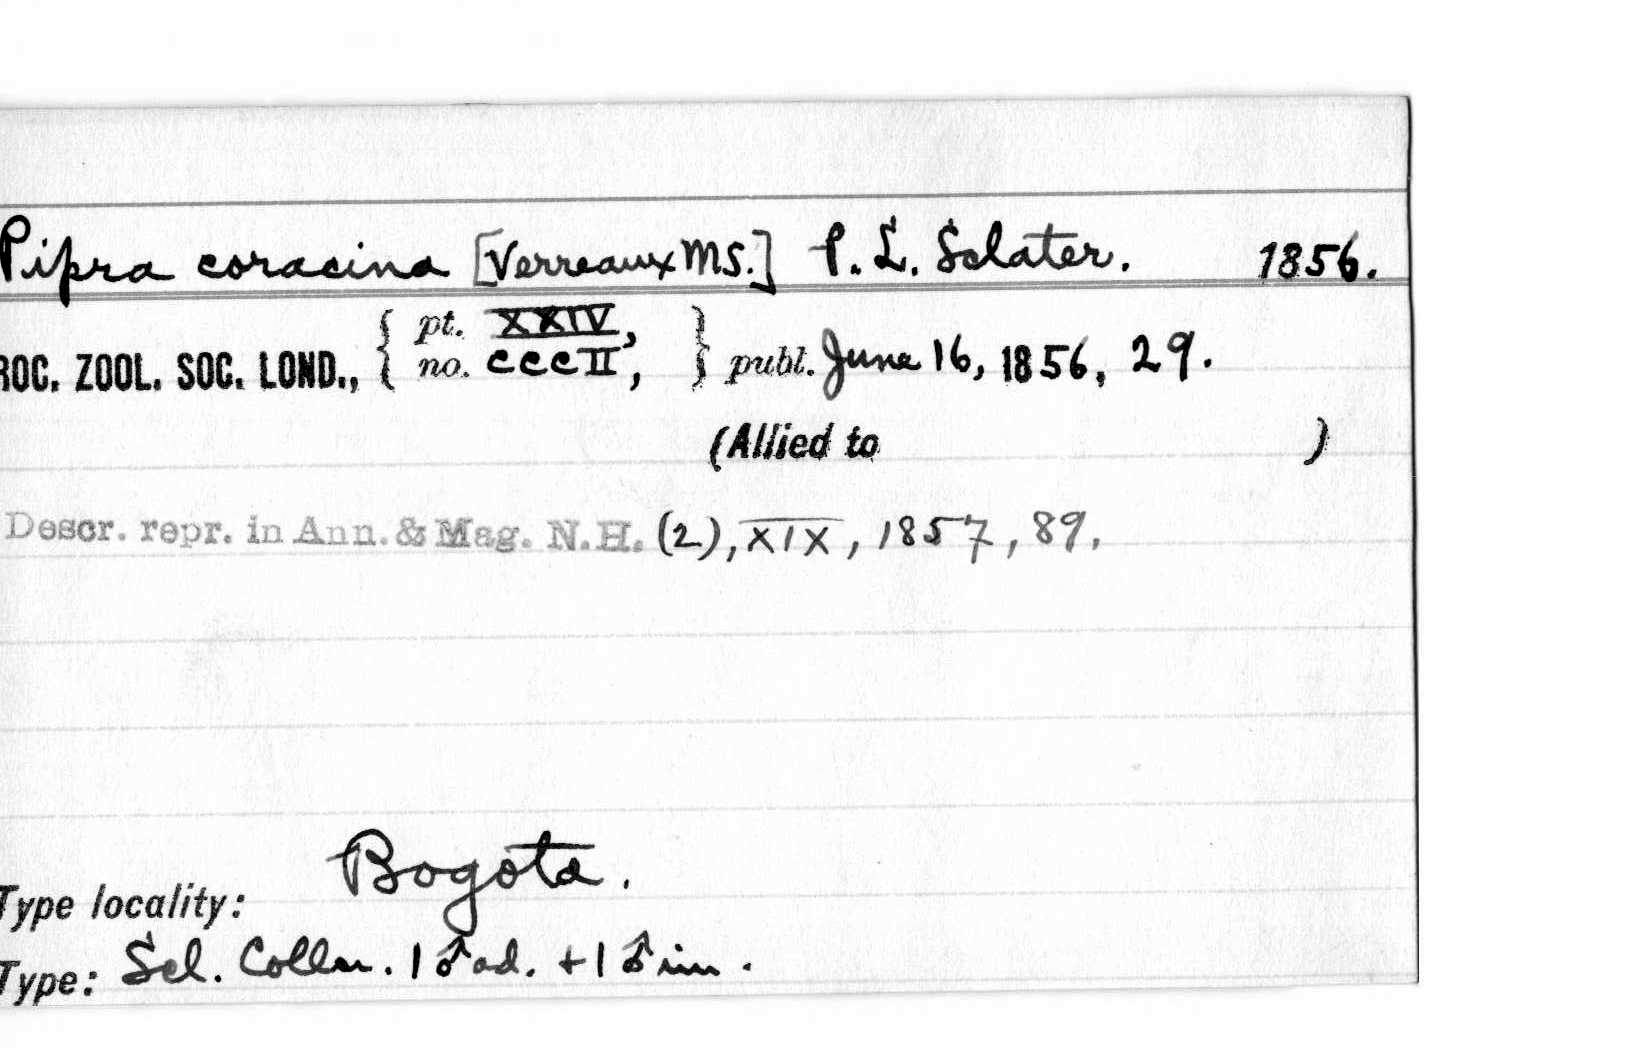 Pipra coracina [Verreaux MS.] P. L. Sclater. 1856.
ROC. ZOOL. SOC. LOND., { pt. XXIV, no. cccII, } publ. June 16, 1856, 29.
(Allied to )
Descr. repr. in Ann. & Mag. N.H. (2), XIX, 1857, 89.
Type locality: Bogota.
Type: Scl. Colln. 1 ♂ ad. + 1 ♂ im.